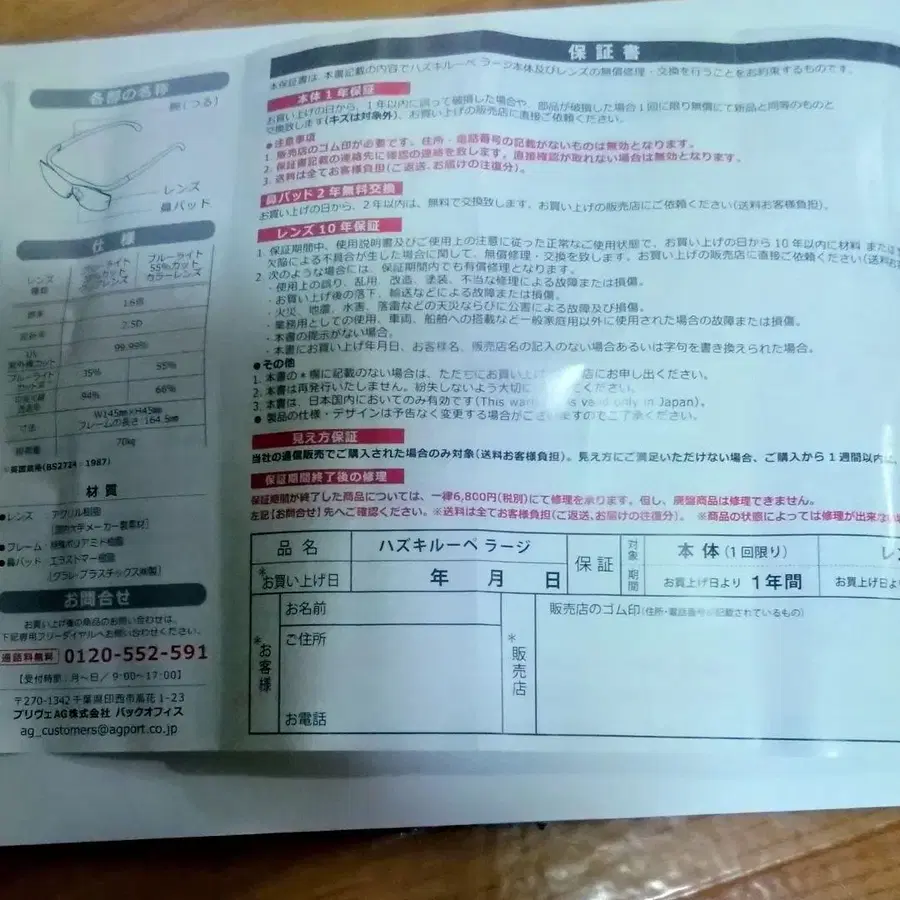 各部の名称
腕(つる)
レンズ
鼻パッド
仕様
レンズ
ブルーライト
55%カット
カラーレンズ
1.6倍
2.5D
99.99%
35%
55%
94%
66%
寸法
W145㎜×H45㎜
フレームの長さ:164.5㎜
70㎏
※英国規格(BS2724:1987)
材質
●レンズ アクリル樹脂
●フレーム 特殊ポリアミド樹脂
●鼻パッド エラストマー樹脂
お問合せ
お買い上げ後の商品のお問い合わせは、
下記専用フリーダイヤルへお問い合わせください。
通話料無料 0120-552-591
【受付時間:月～日／9:00~17:00】
〒270-1342 千葉県印西市高花1-23
プリヴェAG株式会社 バックオフィス
ag_customers@agport.co.jp
保証書
本保証書は、本書記載の内容でハズキルーペ ラージ本体及びレンズの無償修理・交換を行うことをお約束するものです。
本体1年保証
お買い上げの日から、1年以内に誤って破損した場合や、部品が破損した場合1回に限り無償にて新品と同等のものと
交換致します(キズは対象外)、お買い上げの販売店に直接ご依頼ください。
●注意事項
1. 販売店のゴム印が必要です。住所・電話番号の記載がないものは無効となります。
2. 保証書記載の連絡先に確認の連絡を致します。直接確認が取れない場合は無効となります。
3. 送料は全てお客様負担(ご返送、お届けの往復分)。
鼻パッド2年無料交換
お買い上げの日から、2年以内は、無料で交換致します。お買い上げの販売店にご依頼ください(送料お客様負担)。
レンズ10年保証
1. 保証期間中、使用説明書及びご使用上の注意に従った正常なご使用状態で、お買い上げの日から10年以内に材料
欠陥による不具合が生した場合に関して、無償修理・交換を致します。お買い上げの販売店に直接ご依頼ください(送料お
2. 次のような場合には、保証期間内でも有償修理となります。
・使用上の誤り、乱用、改造、塗装、不当な修理による故障または損傷。
・お買い上げ後の落下、輸送などによる故障または損傷。
・火災、地震、水害、落雷などの天災ならびに公害による故障及び損傷。
・業務用としての使用、車両、船舶への搭載など一般家庭用以外に使用された場合の故障または損傷。
・本書の提示がない場合。
・本書にお買い上げ年月日、お客様名、販売店名の記入のない場合あるいは字句を書き換えられた場合。
●その他
1. 本書の＊欄に記載のない場合は、ただちにお買い上げ 店にお申し出ください。
2. 本書は再発行いたしません。紛失しないよう大切に ください。
3. 本書は、日本国内においてのみ有効です(This valid only in Japan)。
● 製品の仕様・デザインは予告なく変更する場合がございますのでご了承ください。
見え方保証
当社の通信販売でご購入された場合のみ対象(送料お客様負担)。見え方にご満足いただけない場合、ご購入から1週間以内
保証期間終了後の修理
保証期間が終了した商品については、一律6,800円(税別)にて修理を承ります。但し、廃盤商品は修理できません。
左記【お問合せ】先へご確認ください。※送料は全てお客様負担(ご返送、お届けの往復分)。 ※商品の状態によっては修理が出来な
品名 ハズキルーペ ラージ 保証 対象 本体(1回限り)
＊お買い上げ日 年 月 日 期間 お買上げ日より 1年間 お買上げ日よ
＊お客様
お名前
ご住所
お電話
＊販売店
販売店のゴム印(住所・電話番号の記載されているもの)